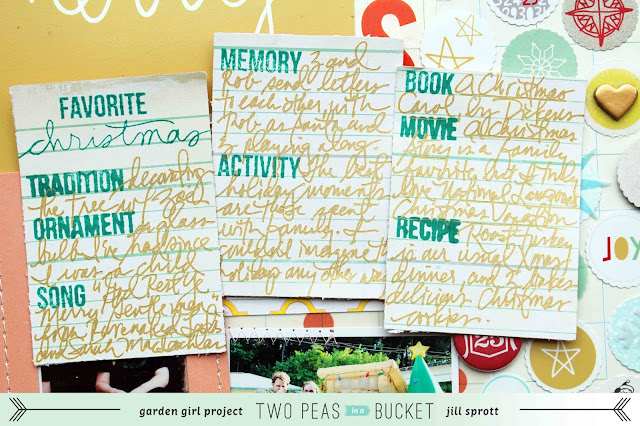 FAVORITE
christmas
TRADITION decorating
the tree w/
ORNAMENT a glass
bulb I've had since
I was a child
SONG "God Rest Ye
Merry Gentlemen"
from Barenaked Ladies
and Sarah MacLachlan
MEMORY Z and
Rob send letters
to each other with
Rob as Santa and
Z playing along.
ACTIVITY the best
holiday moments
are those spent
with family. I
couldn't imagine the
holiday any other way
BOOK A Christmas
Carol by Dickens
MOVIE A Christmas
Story is a family
favorite, but I truly
love National Lampoon's
Christmas Vacation
RECIPE Roast turkey
is our usual Xmas
dinner, and Z bakes
delicious Christmas
cookies.
JOY
25
garden girl project TWO PEAS in a BUCKET jill sprott